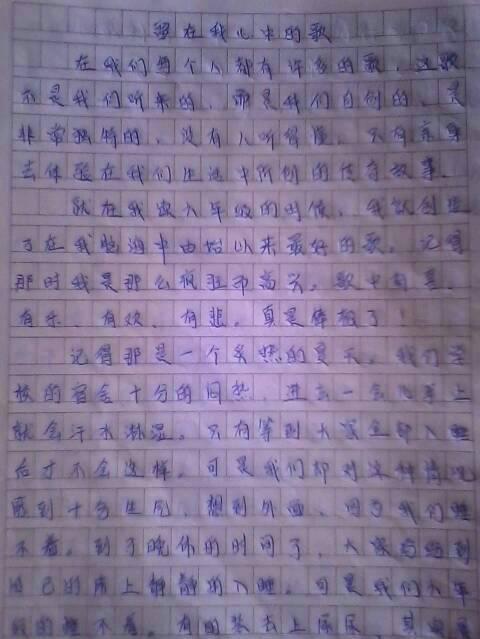 留在我心中的歌
在我们每个人都有许多的歌，这歌
不是我们听来的，而是我们自创的，是
非常独特的，没有人听得懂，只有亲身
去体验在我们生活中所创的传奇故事。
就在我读六年级的时候，我就创造
了在我脑海中由始以来最好的歌。记得
那时我是那么疯狂而高兴。歌中有喜、
有乐、有欢、有悲，真是棒极了！
记得那是一个炎热的夏天，我们学
校的宿舍十分的闷热，进去一会儿身上
就会汗水淋湿。只有等到大家全部入睡
后才不会这样。可是我们却对这种情况
感到十分生气，想到外面，因为我们睡
不着。到了晚休的时间了，大家都回到
自己的床上静静的入睡。可是我们六年
级的睡不着，有的装去上厕所，其